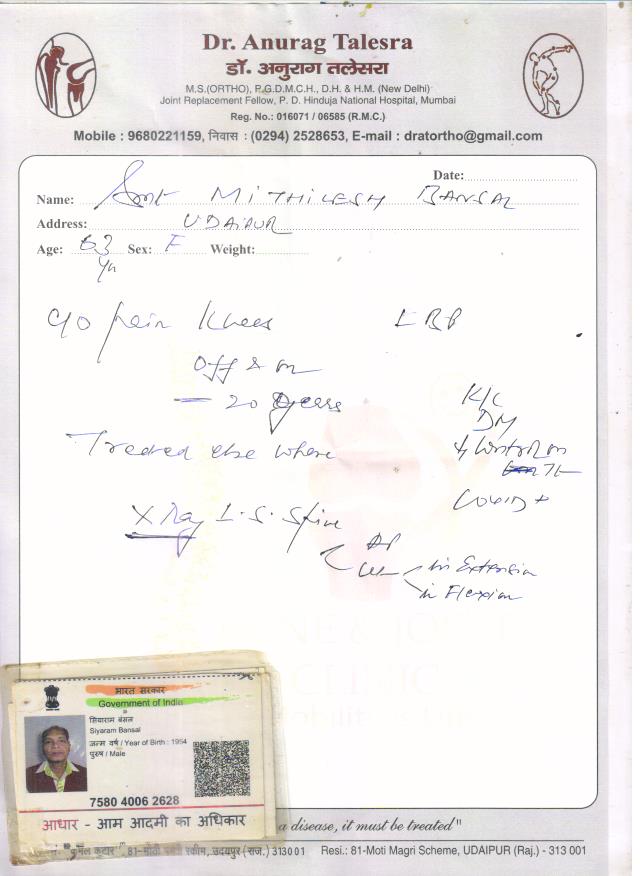 Dr. Anurag Talesra
डॉ. अनुराग तलेसरा
M.S.(ORTHO), P.G.D.M.C.H., D.H. & H.M. (New Delhi)
Joint Replacement Fellow, P. D. Hinduja National Hospital, Mumbai
Reg. No.: 016071 / 06585 (R.M.C.)
Mobile : 9680221159, निवास : (0294) 2528653, E-mail : dratortho@gmail.com
Date:
Name: Smt MITHILESH BANSAL
Address: UDAIPUR
Age: 63 Yr Sex: F Weight:
c/o pain Knees LBP
off & on
— 20 years
K/C
DM
Treated else where
COVID +
X Ray L.S. Spine
AP
in Extension
in Flexion
भारत सरकार
Government of India
सियाराम बंसल
Siyaram Bansal
जन्म वर्ष / Year of Birth : 1954
पुरुष / Male
7580 4006 2628
आधार - आम आदमी का अधिकार
a disease, it must be treated"
81-मोती मगरी स्कीम, उदयपुर (राज.) 313001 Resi.: 81-Moti Magri Scheme, UDAIPUR (Raj.) - 313 001